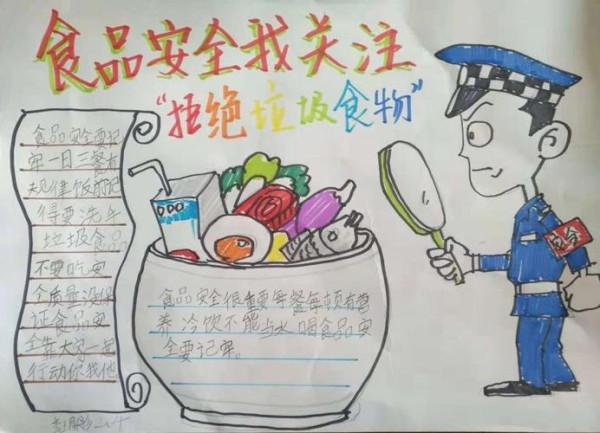 食品安全我关注
“拒绝垃圾食物”
食品安全要记
牢一日三餐有
规律饭前记
得要洗手
垃圾食品
不要吃安
全质量没保
证食品安
全靠大家一起
行动你我他
食品安全很重要每餐每顿有营
养冷饮不能当水喝食品安
全要记牢。
安全